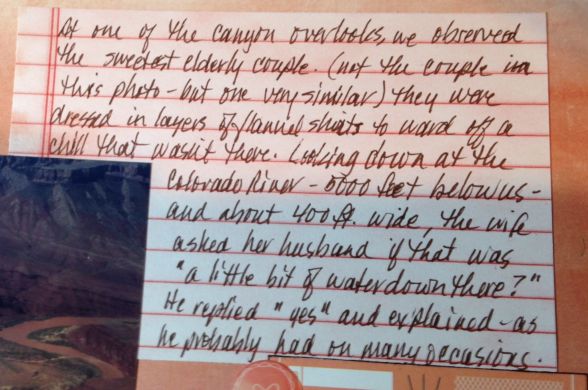 At one of the canyon overlooks, we observed
the sweetest elderly couple. (not the couple in
this photo - but one very similar) They were
dressed in layers of flannel shirts to ward off a
chill that wasn't there. Looking down at the
Colorado River - 5000 feet below us -
and about 400 ft. wide, the wife
asked her husband if that was
"a little bit of water down there?"
He replied "yes" and explained - as
he probably had on many occasions.